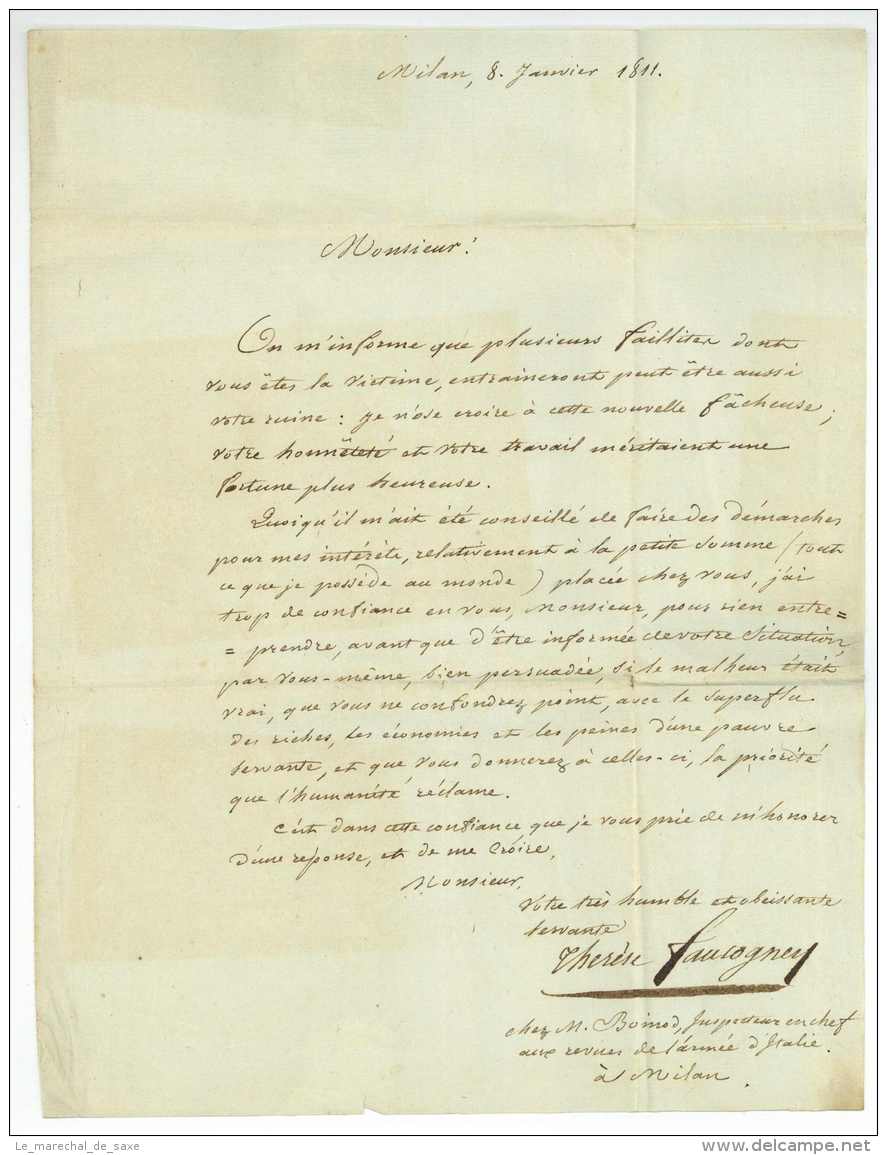 Milan, 8. Janvier 1811.
Monsieur!
On m'informe que plusieurs faillites dont
vous êtes la victime, entraineront peut être aussi
votre ruine : je n'ose croire à cette nouvelle fâcheuse;
votre honnêteté et votre travail méritaient une
fortune plus heureuse.
Quoiqu'il m'ait été conseillé de faire des démarches
pour mes intérêts, relativement à la petite somme (tout
ce que je posséde au monde) placée chez vous, j'ai
trop de confiance en vous, Monsieur, pour rien entre=
= prendre, avant que d'être informée de votre situation,
par vous-même, bien persuadée, si le malheur était
vrai, que vous ne confondrez point, avec le superflu
des riches, les économies et les peines d'une pauvre
servante, et que vous donnerez à celles-ci, la priorité
que l'humanité réclame.
C'est dans cette confiance que je vous prie de m'honorer
d'une réponse, et de me croire,
Monsieur,
Votre très humble et obeissante
servante
Therèse Faucogney
chez M. Boinod, Inspecteur en chef
aux revues de l'armée d'Italie.
à Milan.
Le_marechal_de_saxe
www.delcampe.net